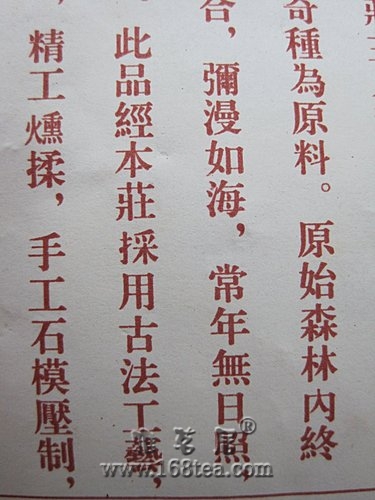 莊主
奇種為原料。原始森林內終
合，彌漫如海，常年無日照，
。此品經本莊採用古法工藝，
，精工燻揉，手工石模壓制，
茗门®
www.168tea.com